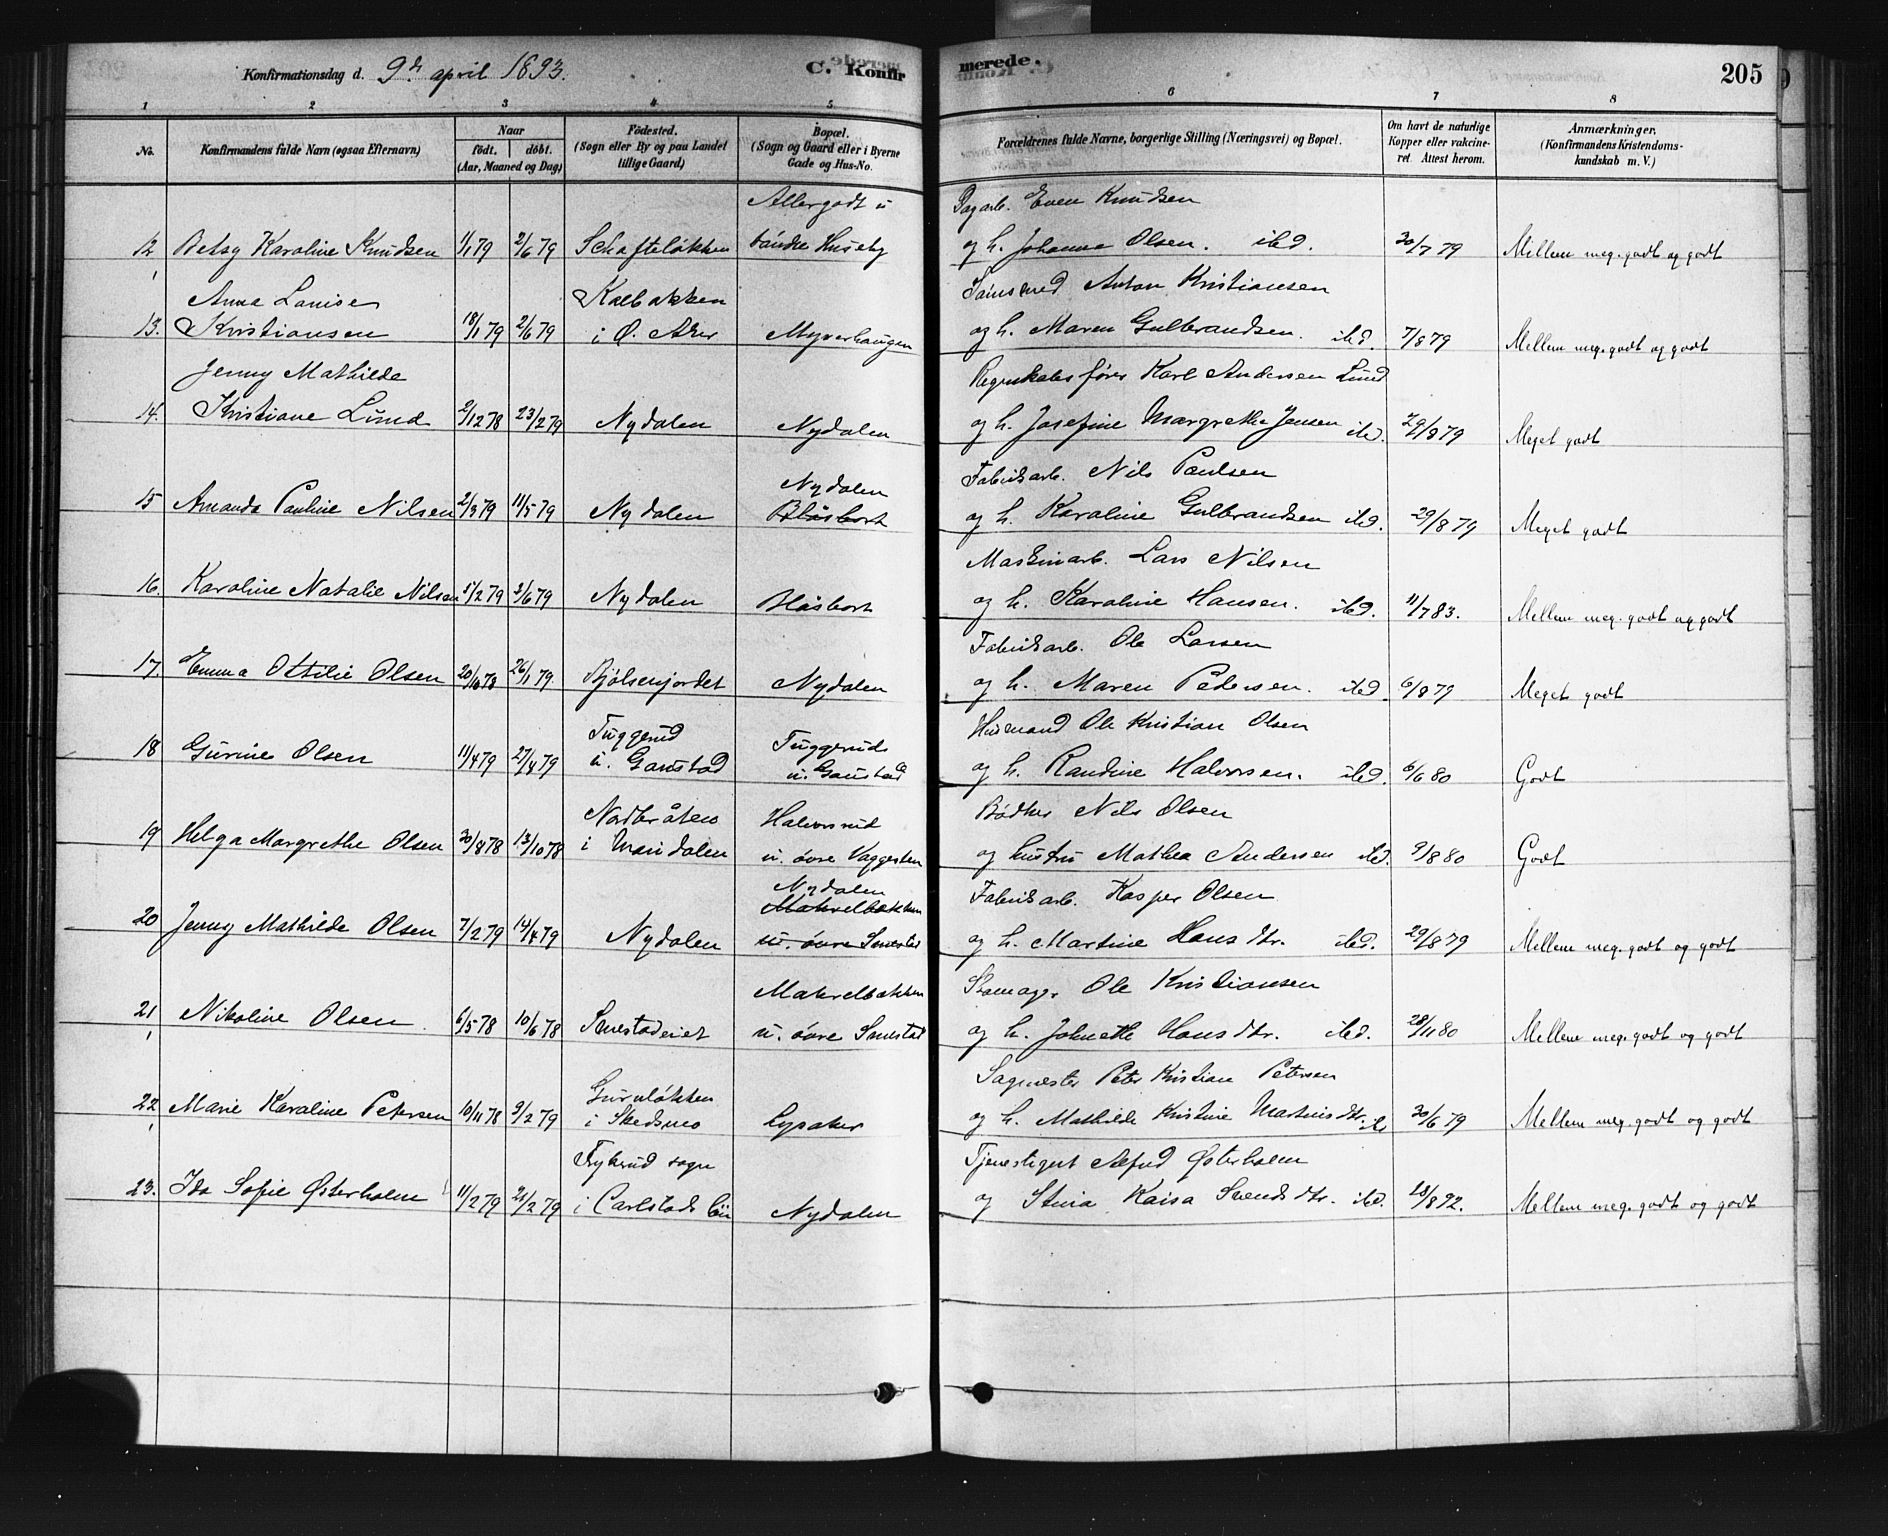 Konfirmationsdag d. 9de april 1893.
C. Konfirmerede.
205
1 2 3 4 5 6 7 8
No.
Konfirmandens fulde Navn (ogsaa Efternavn)
Naar
födt. döbt.
(Aar, Maaned og Dag)
Födested.
(Sogn eller By og paa Landet
tillige Gaard)
Bopæl.
(Sogn og Gaard eller i Byerne
Gade og Hus-No.
Forældrenes fulde Navne, borgerlige Stilling (Næringsvei) og Bopæl.
Om havt de naturlige
Kopper eller vakcine-
ret. Attest herom.
Anmærkninger.
(Konfirmandens Kristendoms-
kundskab m. V.)
Allergodt u Dagarb. Even Knudsen
12 Betsy Karoline Knudsen 1/1 79 2/6 79 Schafteløkken søndre Huseby og h. Johanna Olsen. ibd. 30/7 79 Mellem meg. godt og godt
Anna Louise Kalbakken Anton Kristiansen
13. Kristiansen 18/1 79 2/6 79 i Ø. Aker Myrerhaugen og h. Maren Gulbrandsen. ibd. 7/8 79 Mellem meg. godt og godt
Jenny Mathilde Regnskabsfører Karl Andersen Lund
14. Kristiane Lund 2/12 78 23/2 79 Nydalen Nydalen og h. Josefine Margrethe Jensen ibd. 29/8 79 Meget godt
Nydalen Fabrikarb. Nils Paulsen
15 Amanda Pauline Nilsen 2/3 79 11/5 79 Nydalen Blåsbort og h. Karoline Gulbrandsen ibd. 29/8 79 Meget godt
Maskinarb. Lars Nilsen
16. Karoline Natalie Nilsen 5/2 79 2/6 79 Nydalen Blåsbort og h. Karoline Hansen. ibd. 11/7 83. Mellem meg. godt og godt
Fabrikarb. Ole Larsen
17. Emma Ottilie Olsen 20/10 78 26/1 79 Bjølsenjordet Nydalen og h. Maren Pedersen. ibd. 6/8 79 Meget godt
Tuggerud Tuggerud Husmand Ole Kristian Olsen
18 Gurine Olsen 11/4 79 27/4 79 u. Gaustad u. Gaustad og h. Randine Halvorsen. ibd. 6/6 80 Godt
Nordbråten Halvorsrud Bødker Nils Olsen
19 Helga Margrethe Olsen 30/8 78 13/10 78 i Maridalen u. øvre Vaggesten og hustru Mathea Andersen ibd. 9/8 80 Godt
Nydalen Fabrikarb. Kasper Olsen
20 Jenny Mathilde Olsen 7/2 79 14/4 79 Nydalen Makrelbækken u. øvre Smestad og h. Martine Hansdtr. ibd. 29/8 79 Mellem meg. godt og godt
Makrelbækken Skomager Ole Kristiansen
21 Nikoline Olsen 6/5 78 10/6 78 Smestadeiet u. øvre Smestad og h. Johnette Hansdtr. ibd. 28/11 80 Mellem meg. godt og godt
Sagmester Peter Kristian Petersen
22 Marie Karoline Petersen 10/11 78 9/2 79 i Skedsmo Lysaker og h. Mathilde Kristine Martinsdtr. ib 30/6 79 Mellem meg. godt og godt
Frykerud sogn Tjenestegut Alfred Østerholm
23. Ida Sofie Østerholm 11/2 79 21/2 79 i Carlstads län Nydalen og Stina Kaisa Svendsdtr. ibd. 18/8 92. Mellem meg. godt og godt